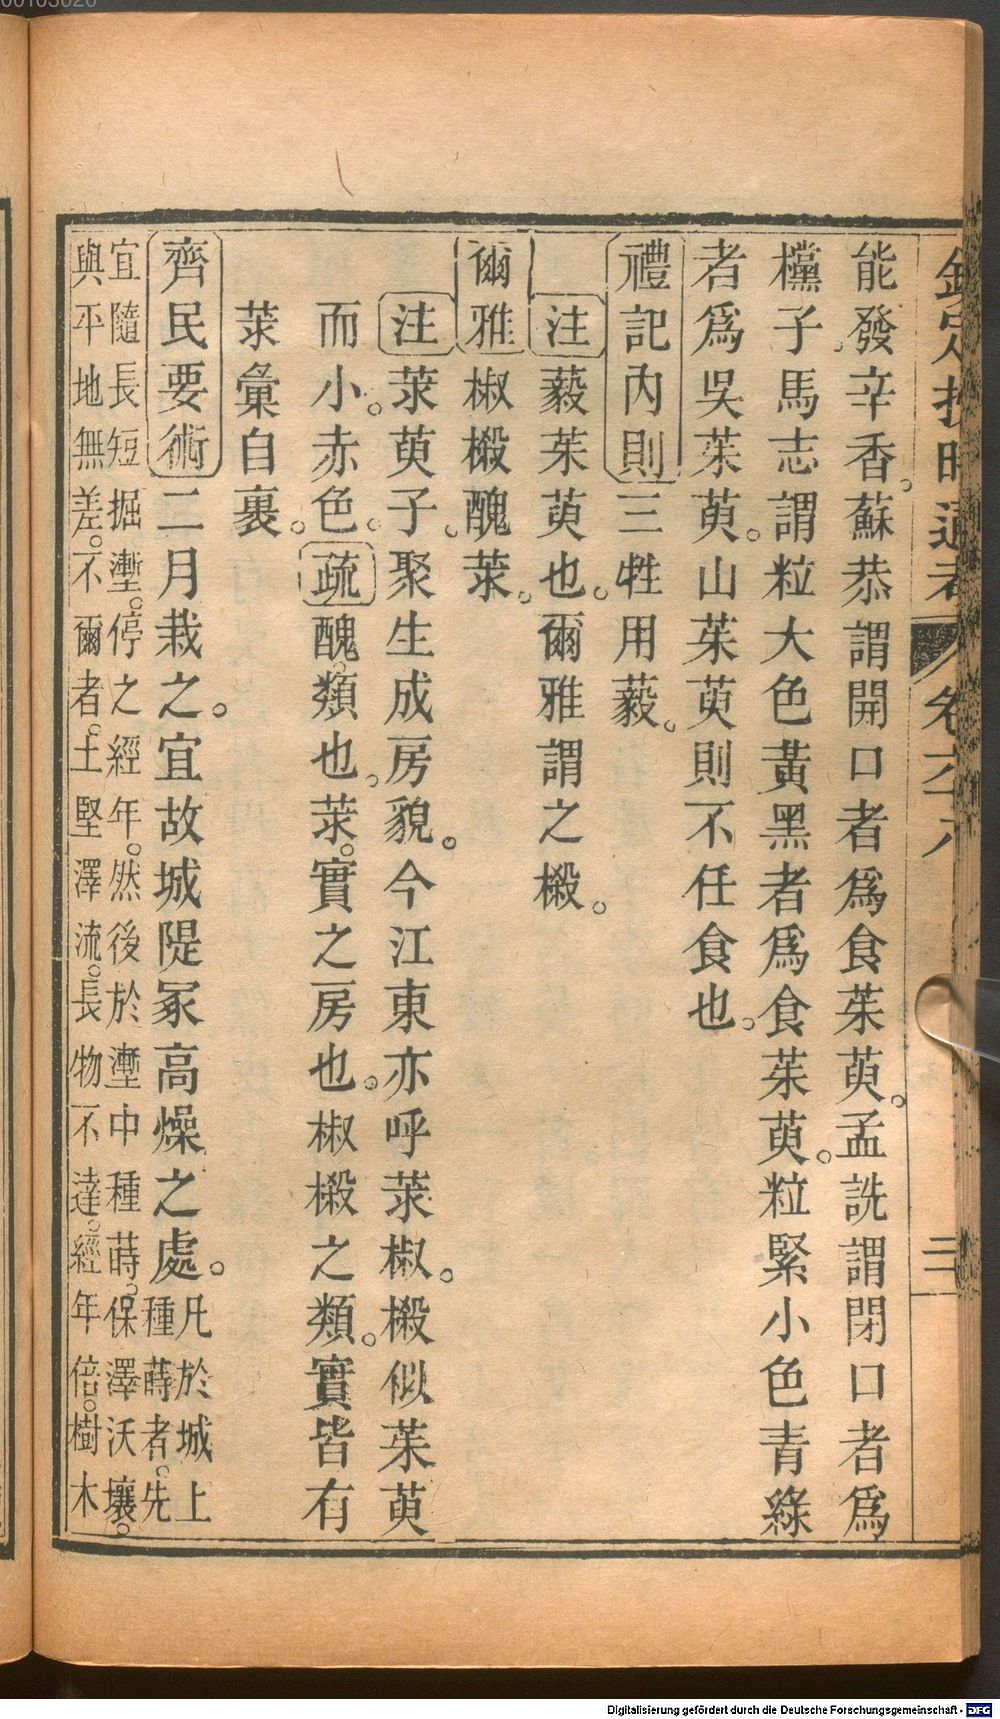 00103020
能發辛香。蘇恭謂開口者爲食茱萸。孟詵謂閉口者爲
欓子。馬志謂粒大色黃黑者爲食茱萸。粒緊小色青綠
者爲吳茱萸。山茱萸則不任食也。
禮記內則三牲用藙。
注藙茱萸也。爾雅謂之榝。
爾雅椒榝醜莍。
注莍萸子。聚生成房貌。今江東亦呼莍椒。榝似茱萸
而小。赤色。疏醜。類也。莍。實之房也。椒榝之類。實皆有
莍彙自裹。
齊民要術二月栽之。宜故城隄冢高燥之處。凡於城上
種蒔者。先
宜隨長短掘壍。停之經年。然後於壍中種蒔。保澤沃壤。
與平地無差。不爾者。土堅澤流。長物不達。經年倍。樹木
Digitalisierung gefördert durch die Deutsche Forschungsgemeinschaft - DFG